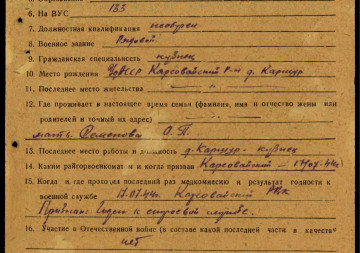 6. На ВУС 133
7. Должностная квалификация необучен
8. Военное звание Рядовой
9. Гражданская специальность кузнец
10. Место рождения УАССР Карсовайский р-н д. Каршур
11. Последнее место жительства — " —
12. Где проживает в настоящее время семья (фамилия, имя и отчество жены или
родителей и точный их адрес)
мать О. П.
13. Последнее место работы и должность д. Каршур - кузнец
14. Каким райгорвоенкоматом и когда призван Карсовайский - 17/07-44г.
15. Когда и где проходил последний раз медкомиссию и результат годности к
военной службе 17.07.44г. Карсовайский РВК
Признан: Годен к строевой службе.
16. Участие в Отечественной войне (в составе какой последней части в качестве
нет